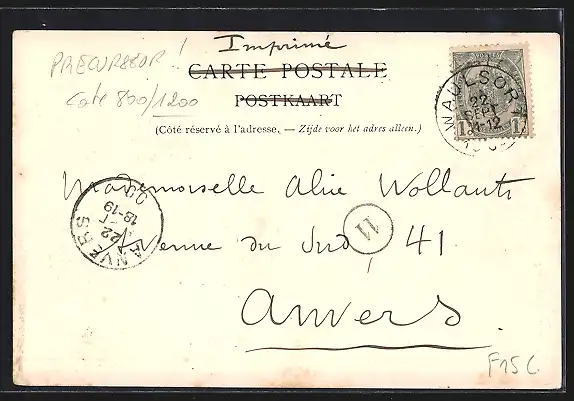 Imprimé
PRECURSEUR !
Cote 800/1200
CARTE POSTALE
POSTKAART
(Côté réservé à l'adresse. — Zijde voor het adres alleen.)
WAULSORT
22
SEPT
1
1
12
Mademoiselle Alice Wollants
Avenue du Sud, 41
Anvers
ANVERS
22
18-19
F15C